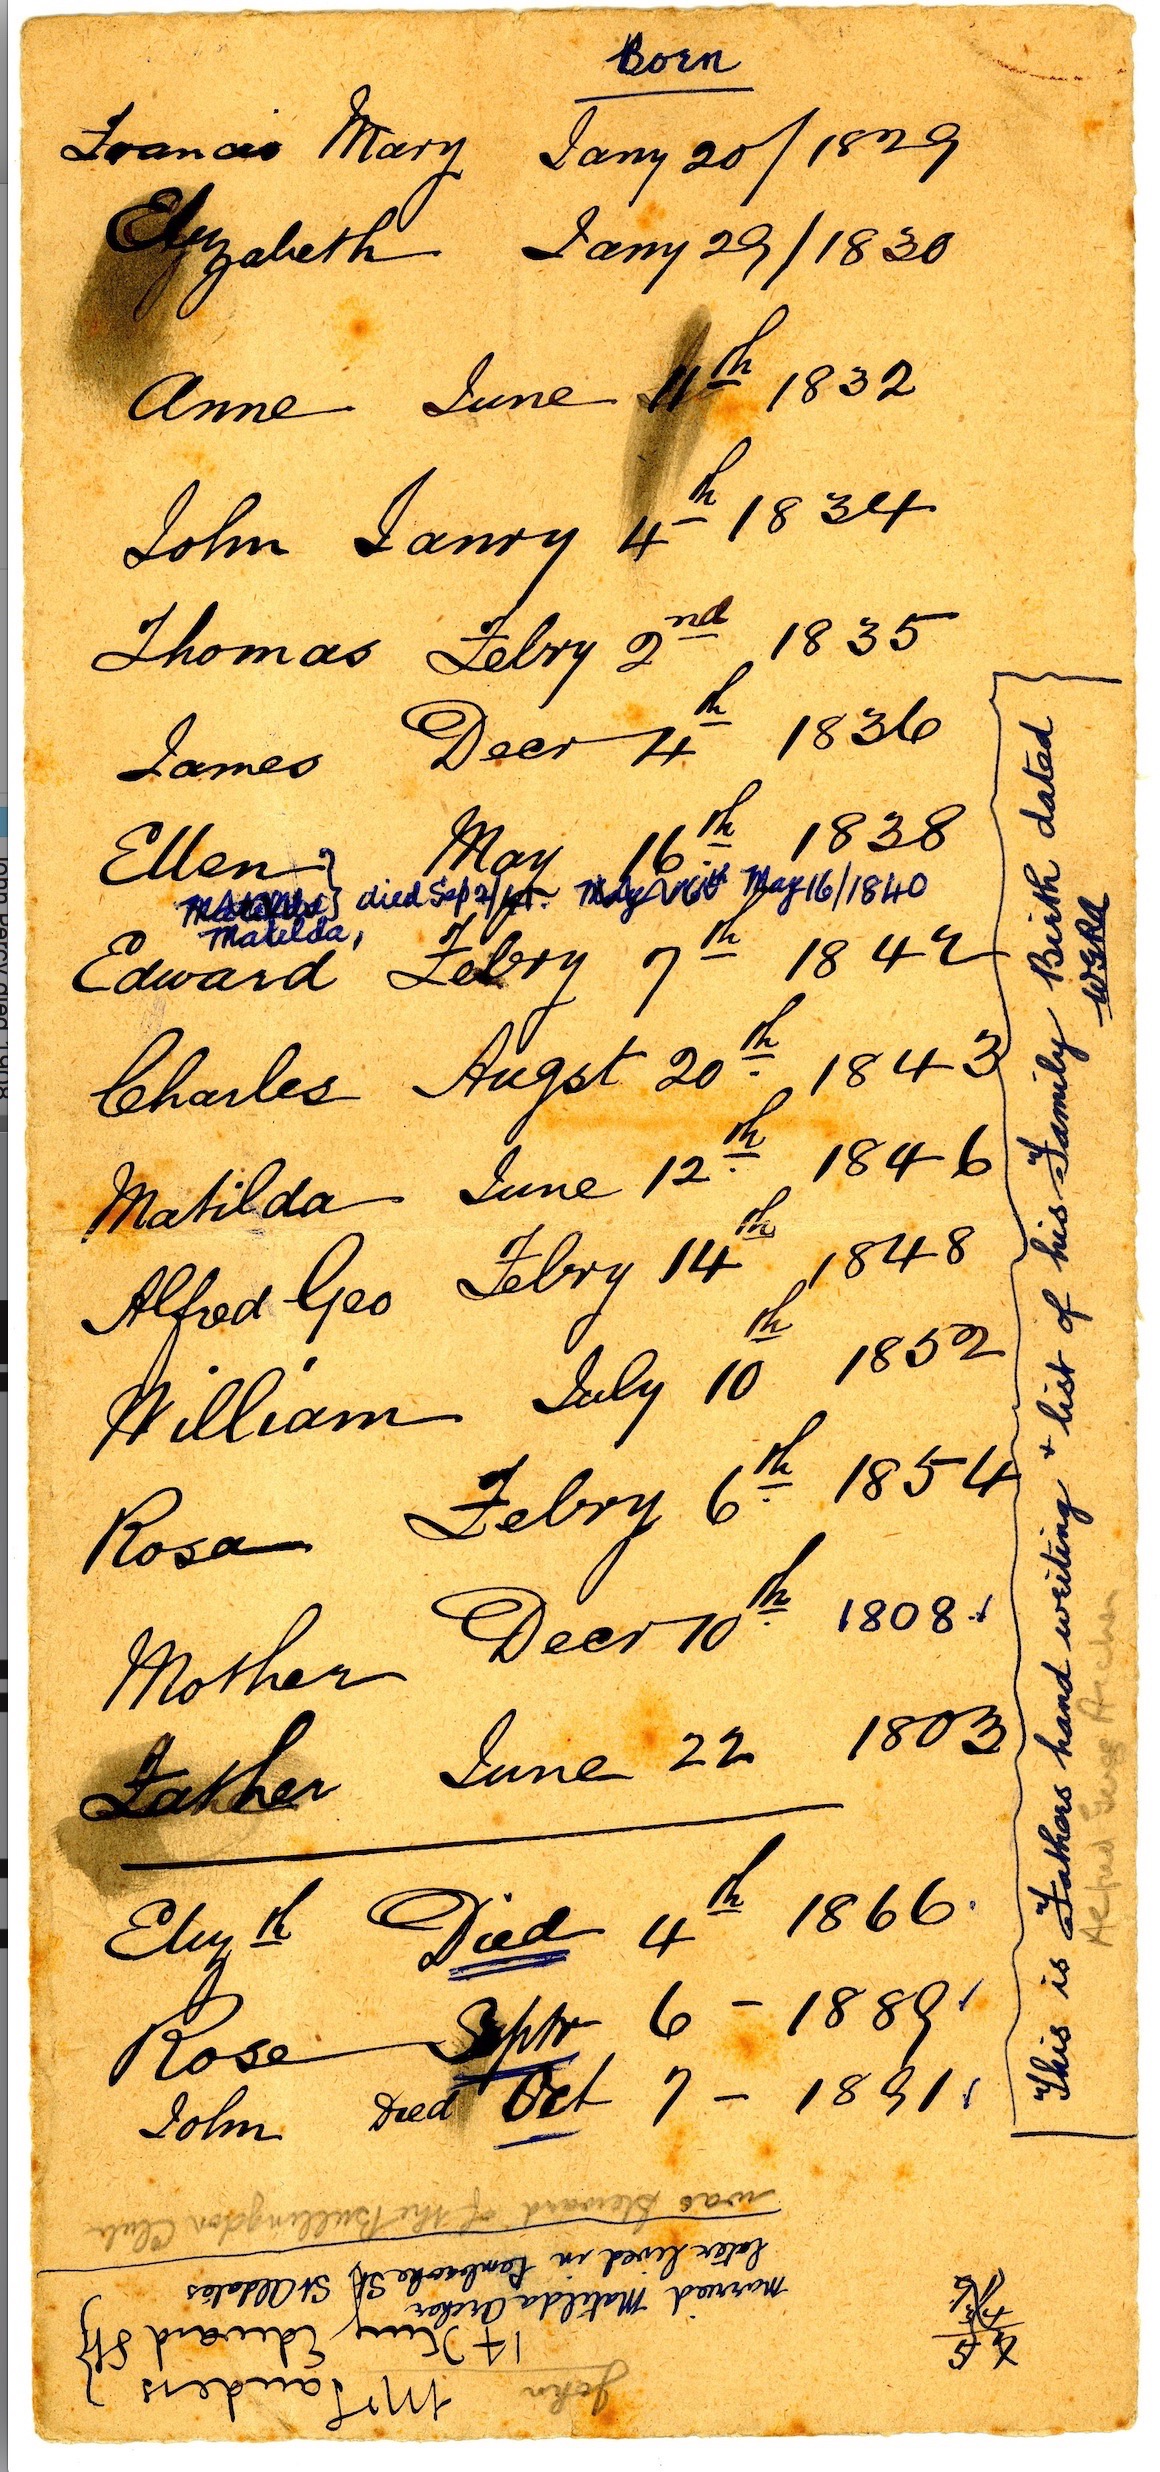 Born
Francis Mary Jany 20/1829
Elyzabeth Jany 29/1830
Anne June 11th 1832
John Janry 4th 1834
Thomas Febry 2nd 1835
James Decr 4th 1836
Ellen } May 16th 1838
} died Sep 2/ May 16/1840
Matilda,
Edward Febry 7th 1842
Charles Augst 20th 1843
Matilda June 12th 1846
Alfred Geo Febry 14th 1848
William July 10th 1852
Rosa Febry 6th 1854
Mother Decr 10th 1808
Father June 22 1803
Elyzth Died 4th 1866
Rose Septr 6 - 1889
John Died Oct 7 - 1891
This is Fathers hand writing + list of his Family Birth dated
Alfred George Archer
John
Mr Sanders }
14 King Edward St }
married Matilda Archer
later lived in Pembroke St, St Aldates
was Steward of the Bullingdon Club